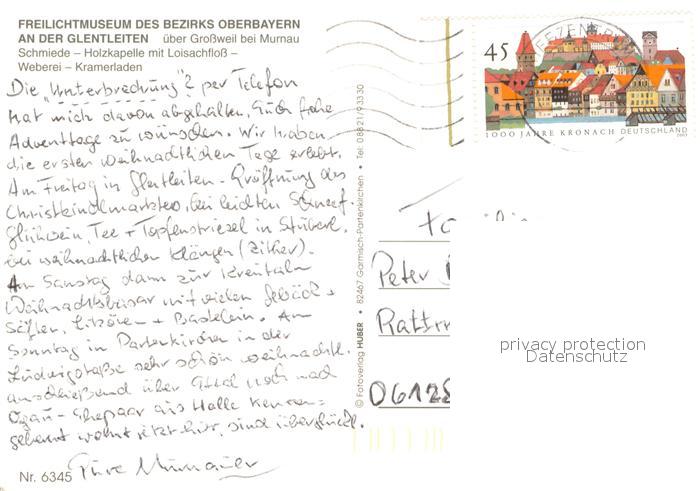 FREILICHTMUSEUM DES BEZIRKS OBERBAYERN
AN DER GLENTLEITEN über Großweil bei Murnau
Schmiede – Holzkapelle mit Loisachfloß –
Weberei – Kramerladen
Die "Unterbrechung"? per Telefon
hat mich davon abgehalten, Euch frohe
Adventtage zu wünschen. Wir haben
die ersten weihnachtlichen Tage erlebt.
Am Freitag in Glentleiten - Eröffnung des
Christkindlmarktes, bei leichtem Schneef.
Glühwein, Tee + Topfenstriezel in Stüberl,
bei weihnachtlichen Klängen (Zither).
Am Samstag dann zur Kreuzalm
Weihnachtsbasar mit vielen Gebäck +
Säften, Likören + Basteleien. Am
Sonntag in Partenkirchen in der
Ludwigstraße sehr schön weihnachtl.
anschließend über Ettal noch nach
Ogau - Ehepaar aus Halle kennen=
gelernt wohnt jetzt hier, sind überglückl.
Eure Murnauer
Nr. 6345
© Fotoverlag HUBER • 82467 Garmisch-Partenkirchen • Tel: 08821/93330
45
1000 JAHRE KRONACH DEUTSCHLAND
2003
Peter
06128
privacy protection
Datenschutz